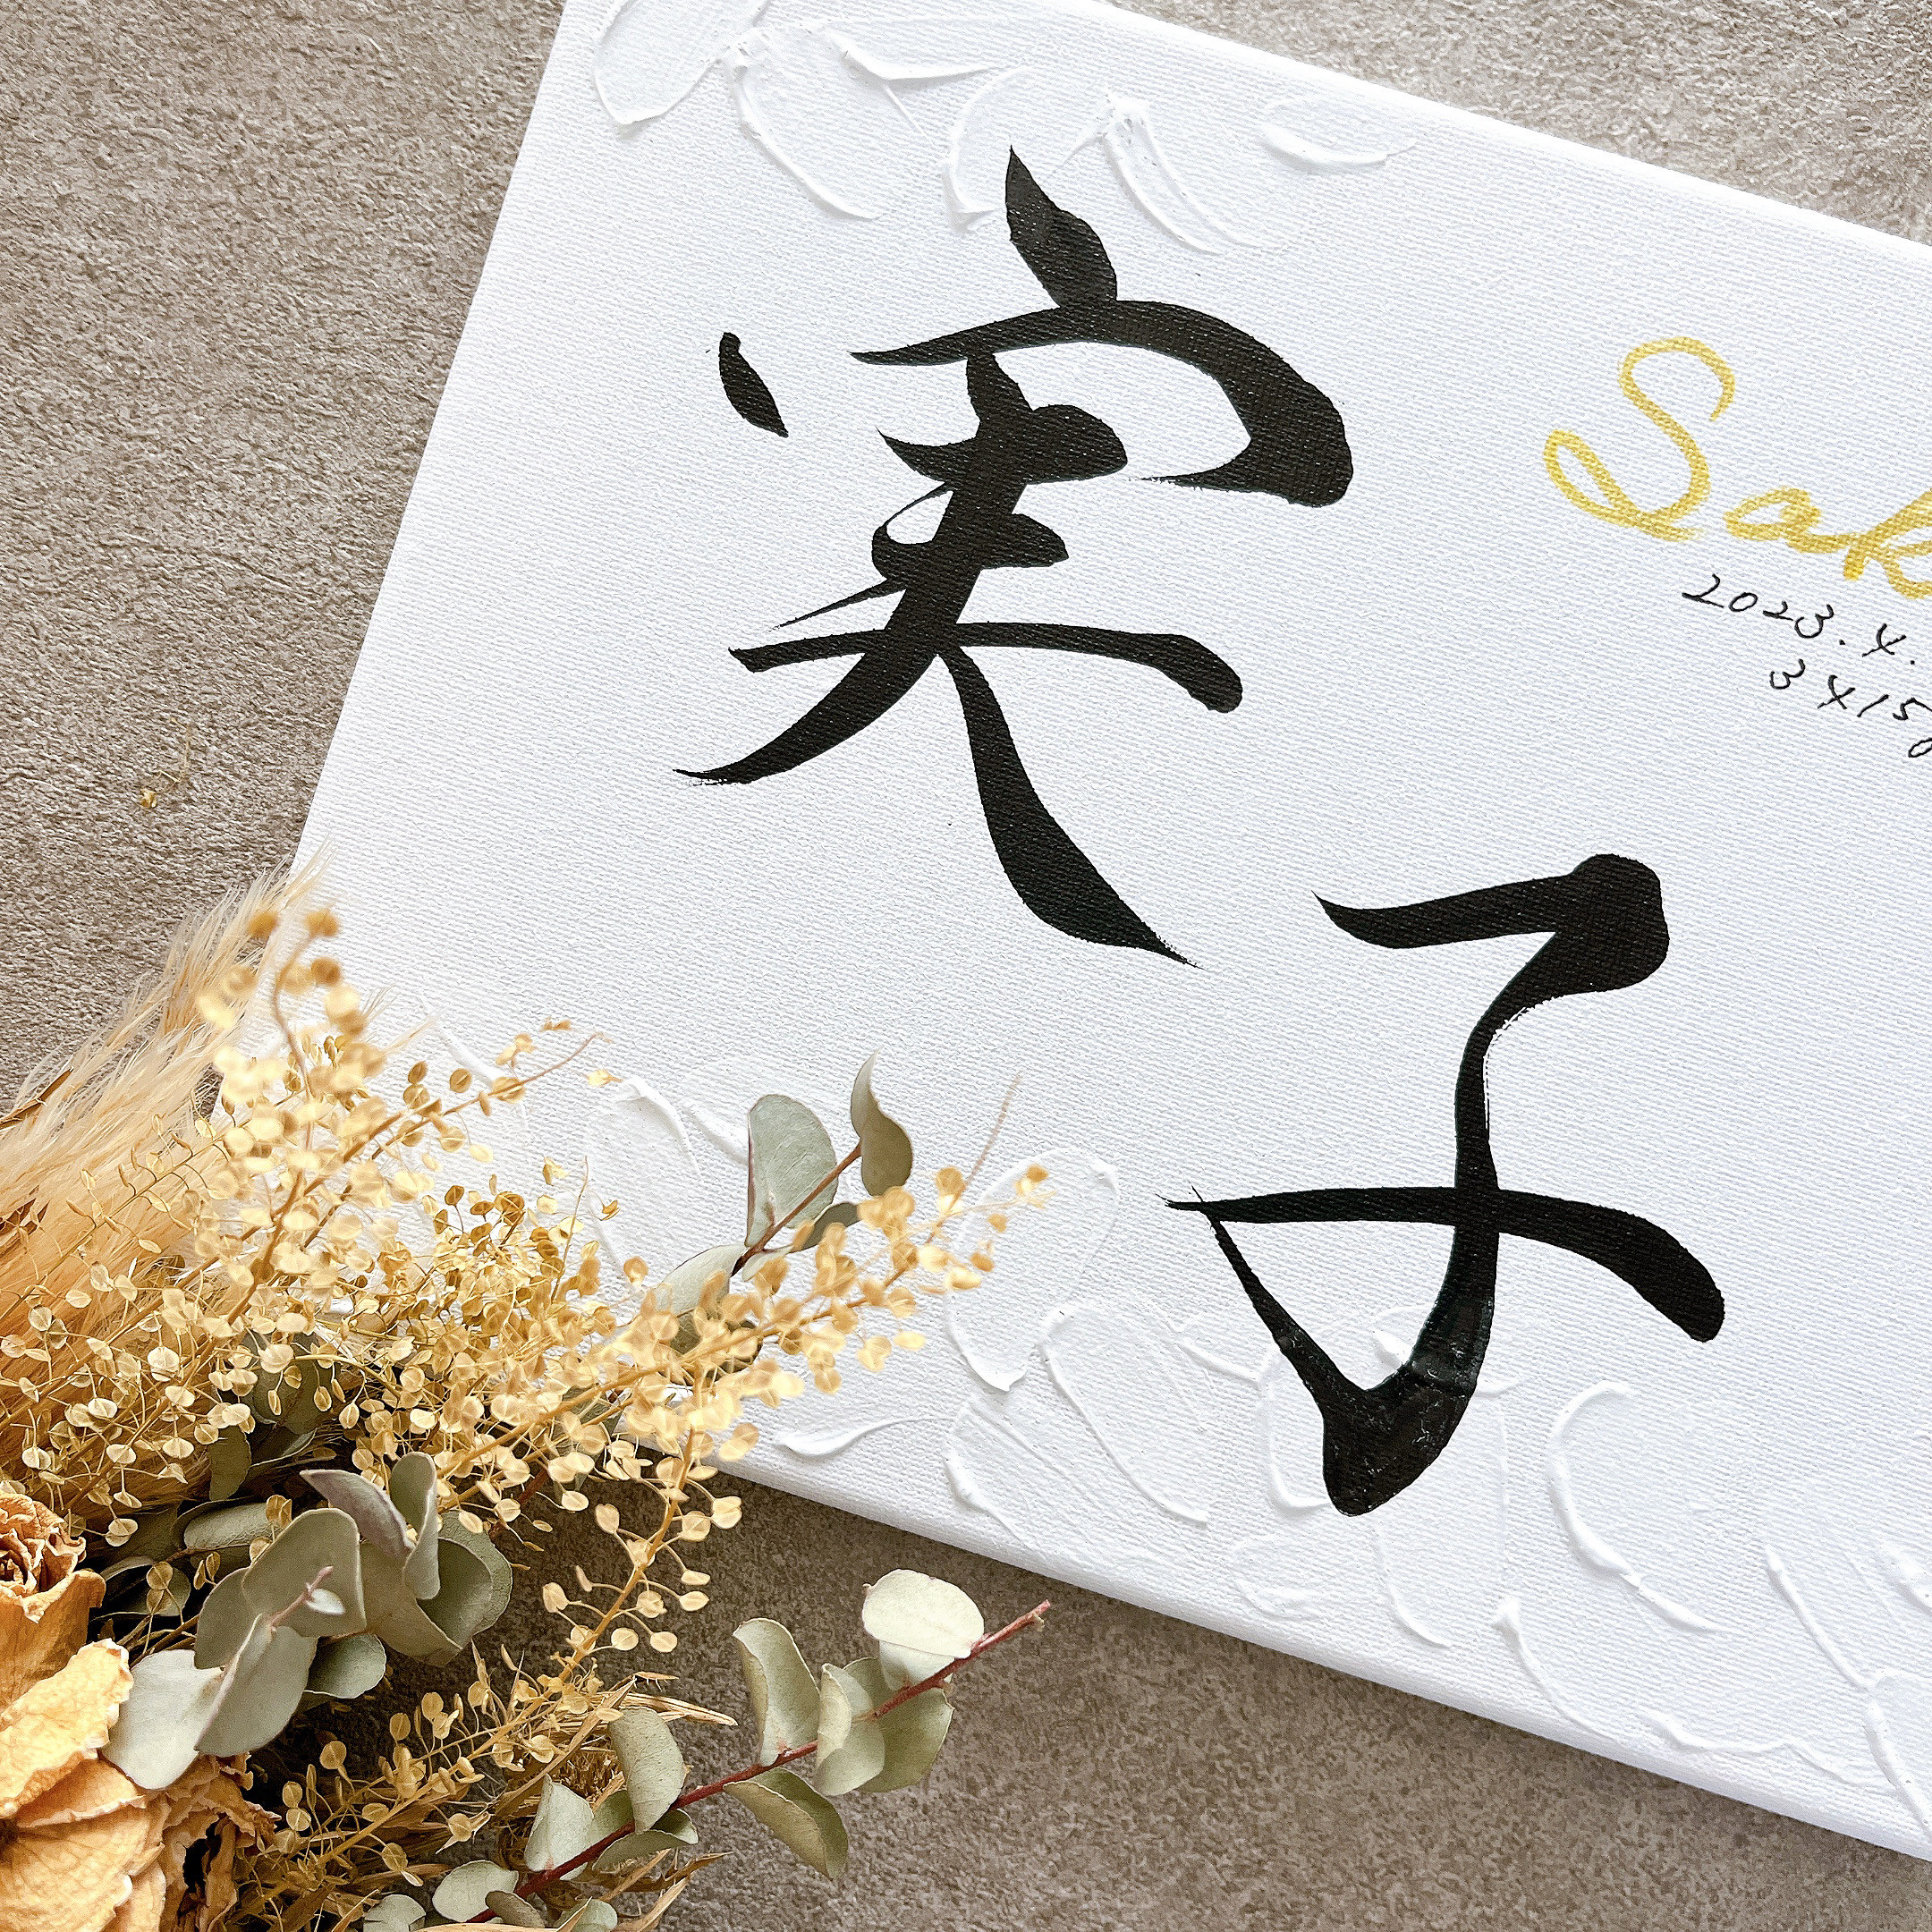 実子
Sak
2023.4.
3415g